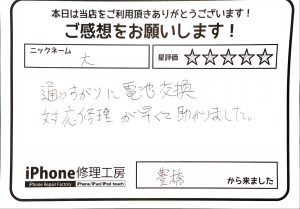 本日は当店をご利用頂きありがとうございます！
ご感想をお願いします！
ニックネーム
大
星評価 ☆☆☆☆☆
通りすがりに電池交換
対応修理が早くて助かりました。
iPhone修理工房
iPhone Repair Factory iPhone/iPad/iPod touch
豊橋 から来ました